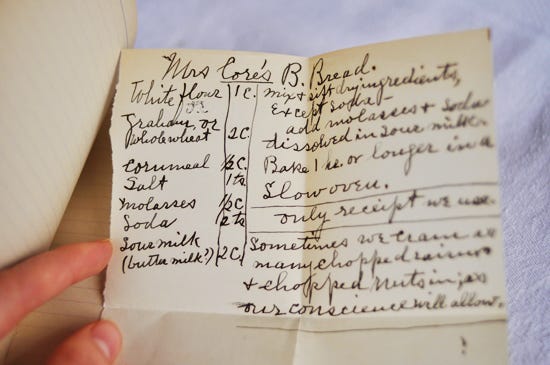 Mrs Core's B. Bread.
White flour 1 c.
Graham, or
Wholewheat 2 C
Cornmeal 1/2 C.
Salt 1 ts
Molasses 1/2 C
Soda 2 ts
Sour milk
(butter milk?) 2 C.
Mix & sift dry ingredients,
Except soda!
add molasses & soda
dissolved in sour milk.
Bake 1 hr or longer in a
Slow oven.
only receipt we use
Sometimes we cram as
many chopped raisins
& chopped nuts in, as
our conscience will allow.
!